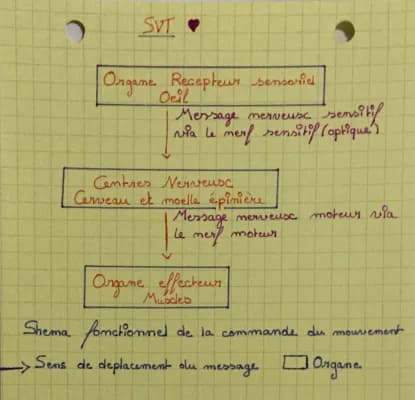 SVT
Organe Recepteur sensoriel
Oeil
Message nerveux sensitif
via le nerf sensitif (optique)
Centres Nerveux
Cerveau et moelle épinière
Message nerveux moteur via
le nerf moteur
Organe effecteur
Muscles
Shema fonctionnel de la commande du mouvement
Sens de deplacement du message
Organe